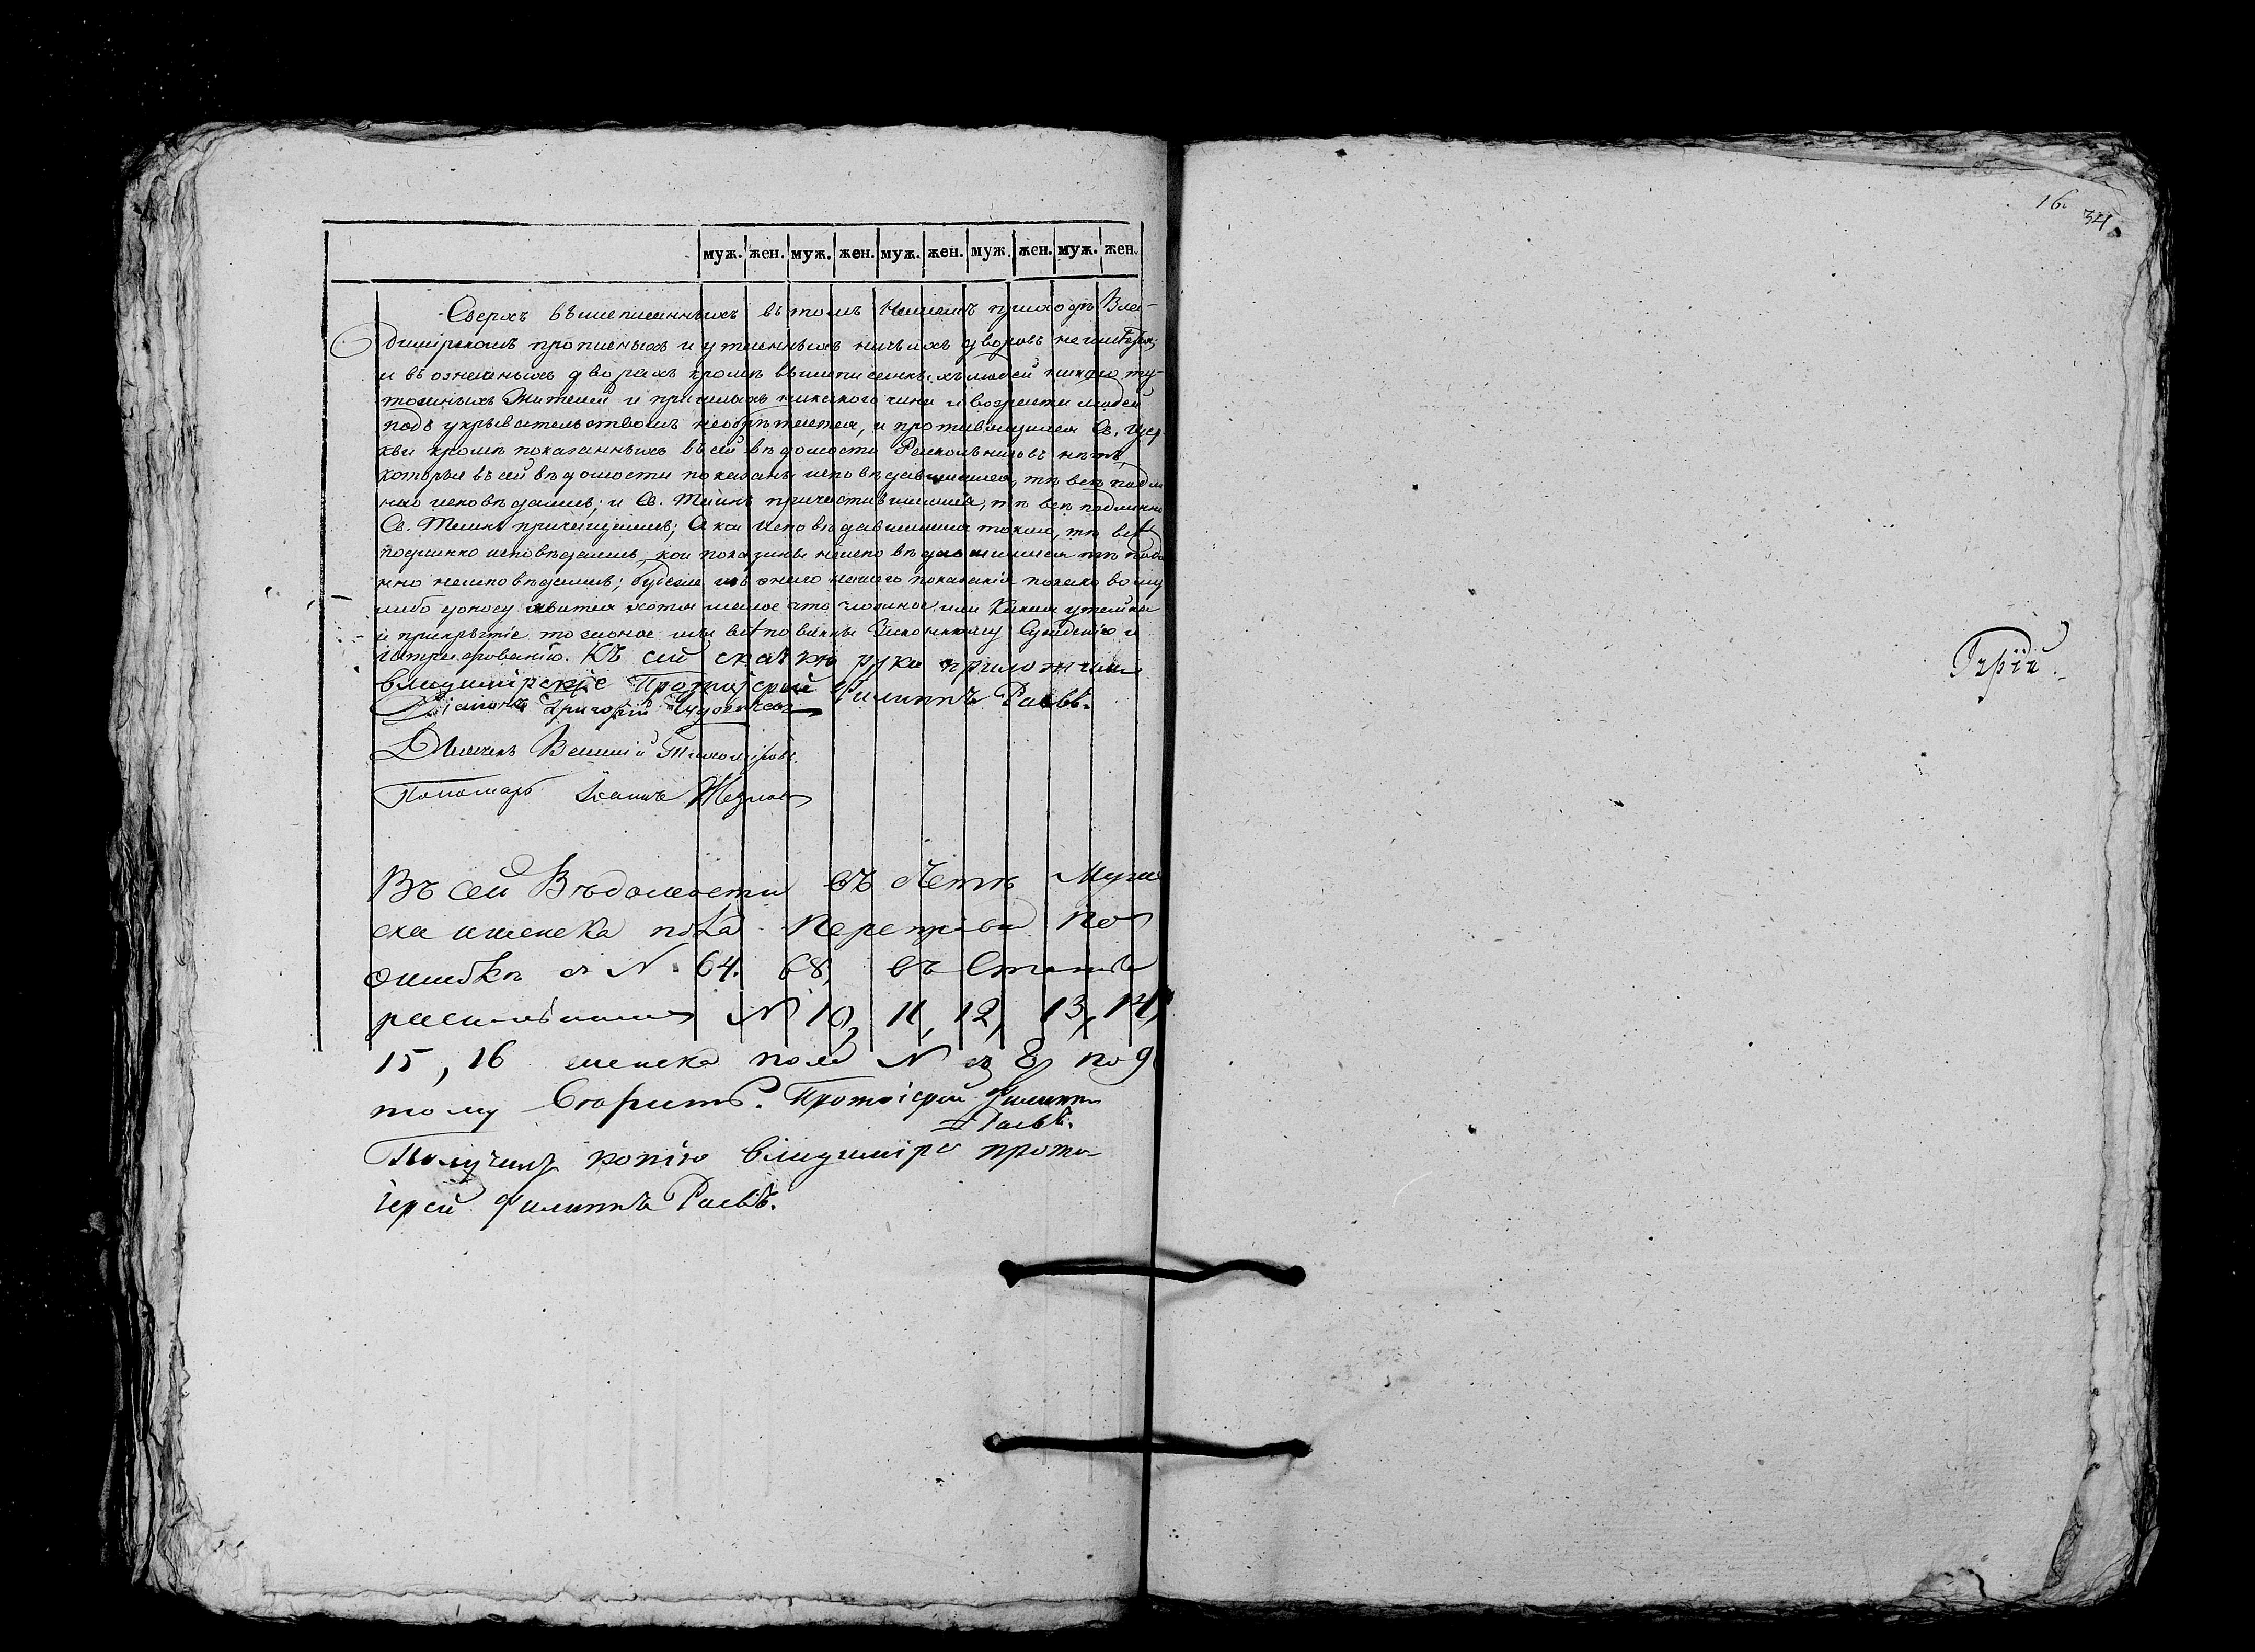 муж. жен. муж. жен. муж. жен. муж. жен. муж. жен.
Сверхъ вышеписанныхъ въ томъ нашемъ приходѣ Вла-
димірскомъ прописныхъ и утаенныхъ ничьихъ дворовъ неимѣется
и въ означенныхъ дворахъ кромѣ вышеписанныхъ людей никого ту-
тошныхъ жителей и пришлыхъ никакого чина и возраста людей
подъ укрывательствомъ необрѣтается, и противящихся Св. Цер-
кви кромѣ показанныхъ въ сей вѣдомости Раскольниковъ нѣтъ,
которые въ сей вѣдомости показаны исповѣдавшимися, тѣ всѣ подли
нно исповѣдались; и Св. Таинъ причастившимися, тѣ всѣ подлинно
Св. Таинъ причащались; А кои исповѣдавшимися токмо, тѣ всѣ
подлинно исповѣдались, кои показаны неисповѣдавшимися тѣ подли
нно неисповѣдались; будеже изъ онаго нашего показанія по како вому
либо доносу явится хотя малое что ложное, или какая утайка
и прикрытіе то за оное мы всѣ повинны Законному Сужденію и
штрафованію. Къ сей сказкѣ руки приложили
владимірскіе Протоіерей Филиппъ Раевъ.
Діаконъ Григорій
Дьячекъ Василій Тихоміровъ
Пономарь Іоаннъ
Въ сей Вѣдомости въ Летѣ Муже
ска и женска пола переправки по
ошибкѣ в N. 64. 68, въ Статьѣ
N 10, 11, 12, 13, 14,
15, 16 женска пола N въ 8 по 9
тому Протоіерей Филиппъ
Раевъ.
Получилъ копію владиміръ прото-
іерей Филиппъ Раевъ.
16
34
Гурій